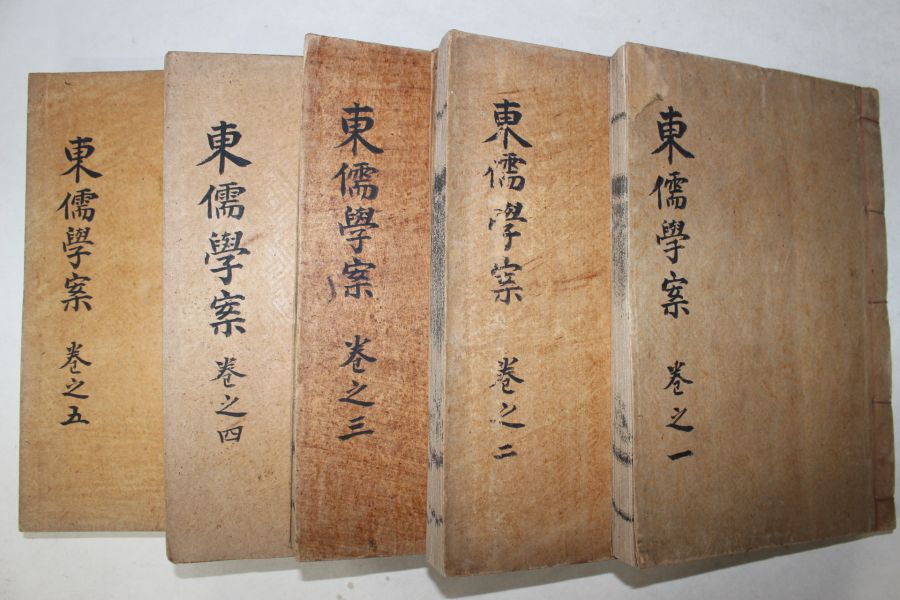 東儒學案 卷之一
東儒學案 卷之二
東儒學案 卷之三
東儒學案 卷之四
東儒學案 卷之五